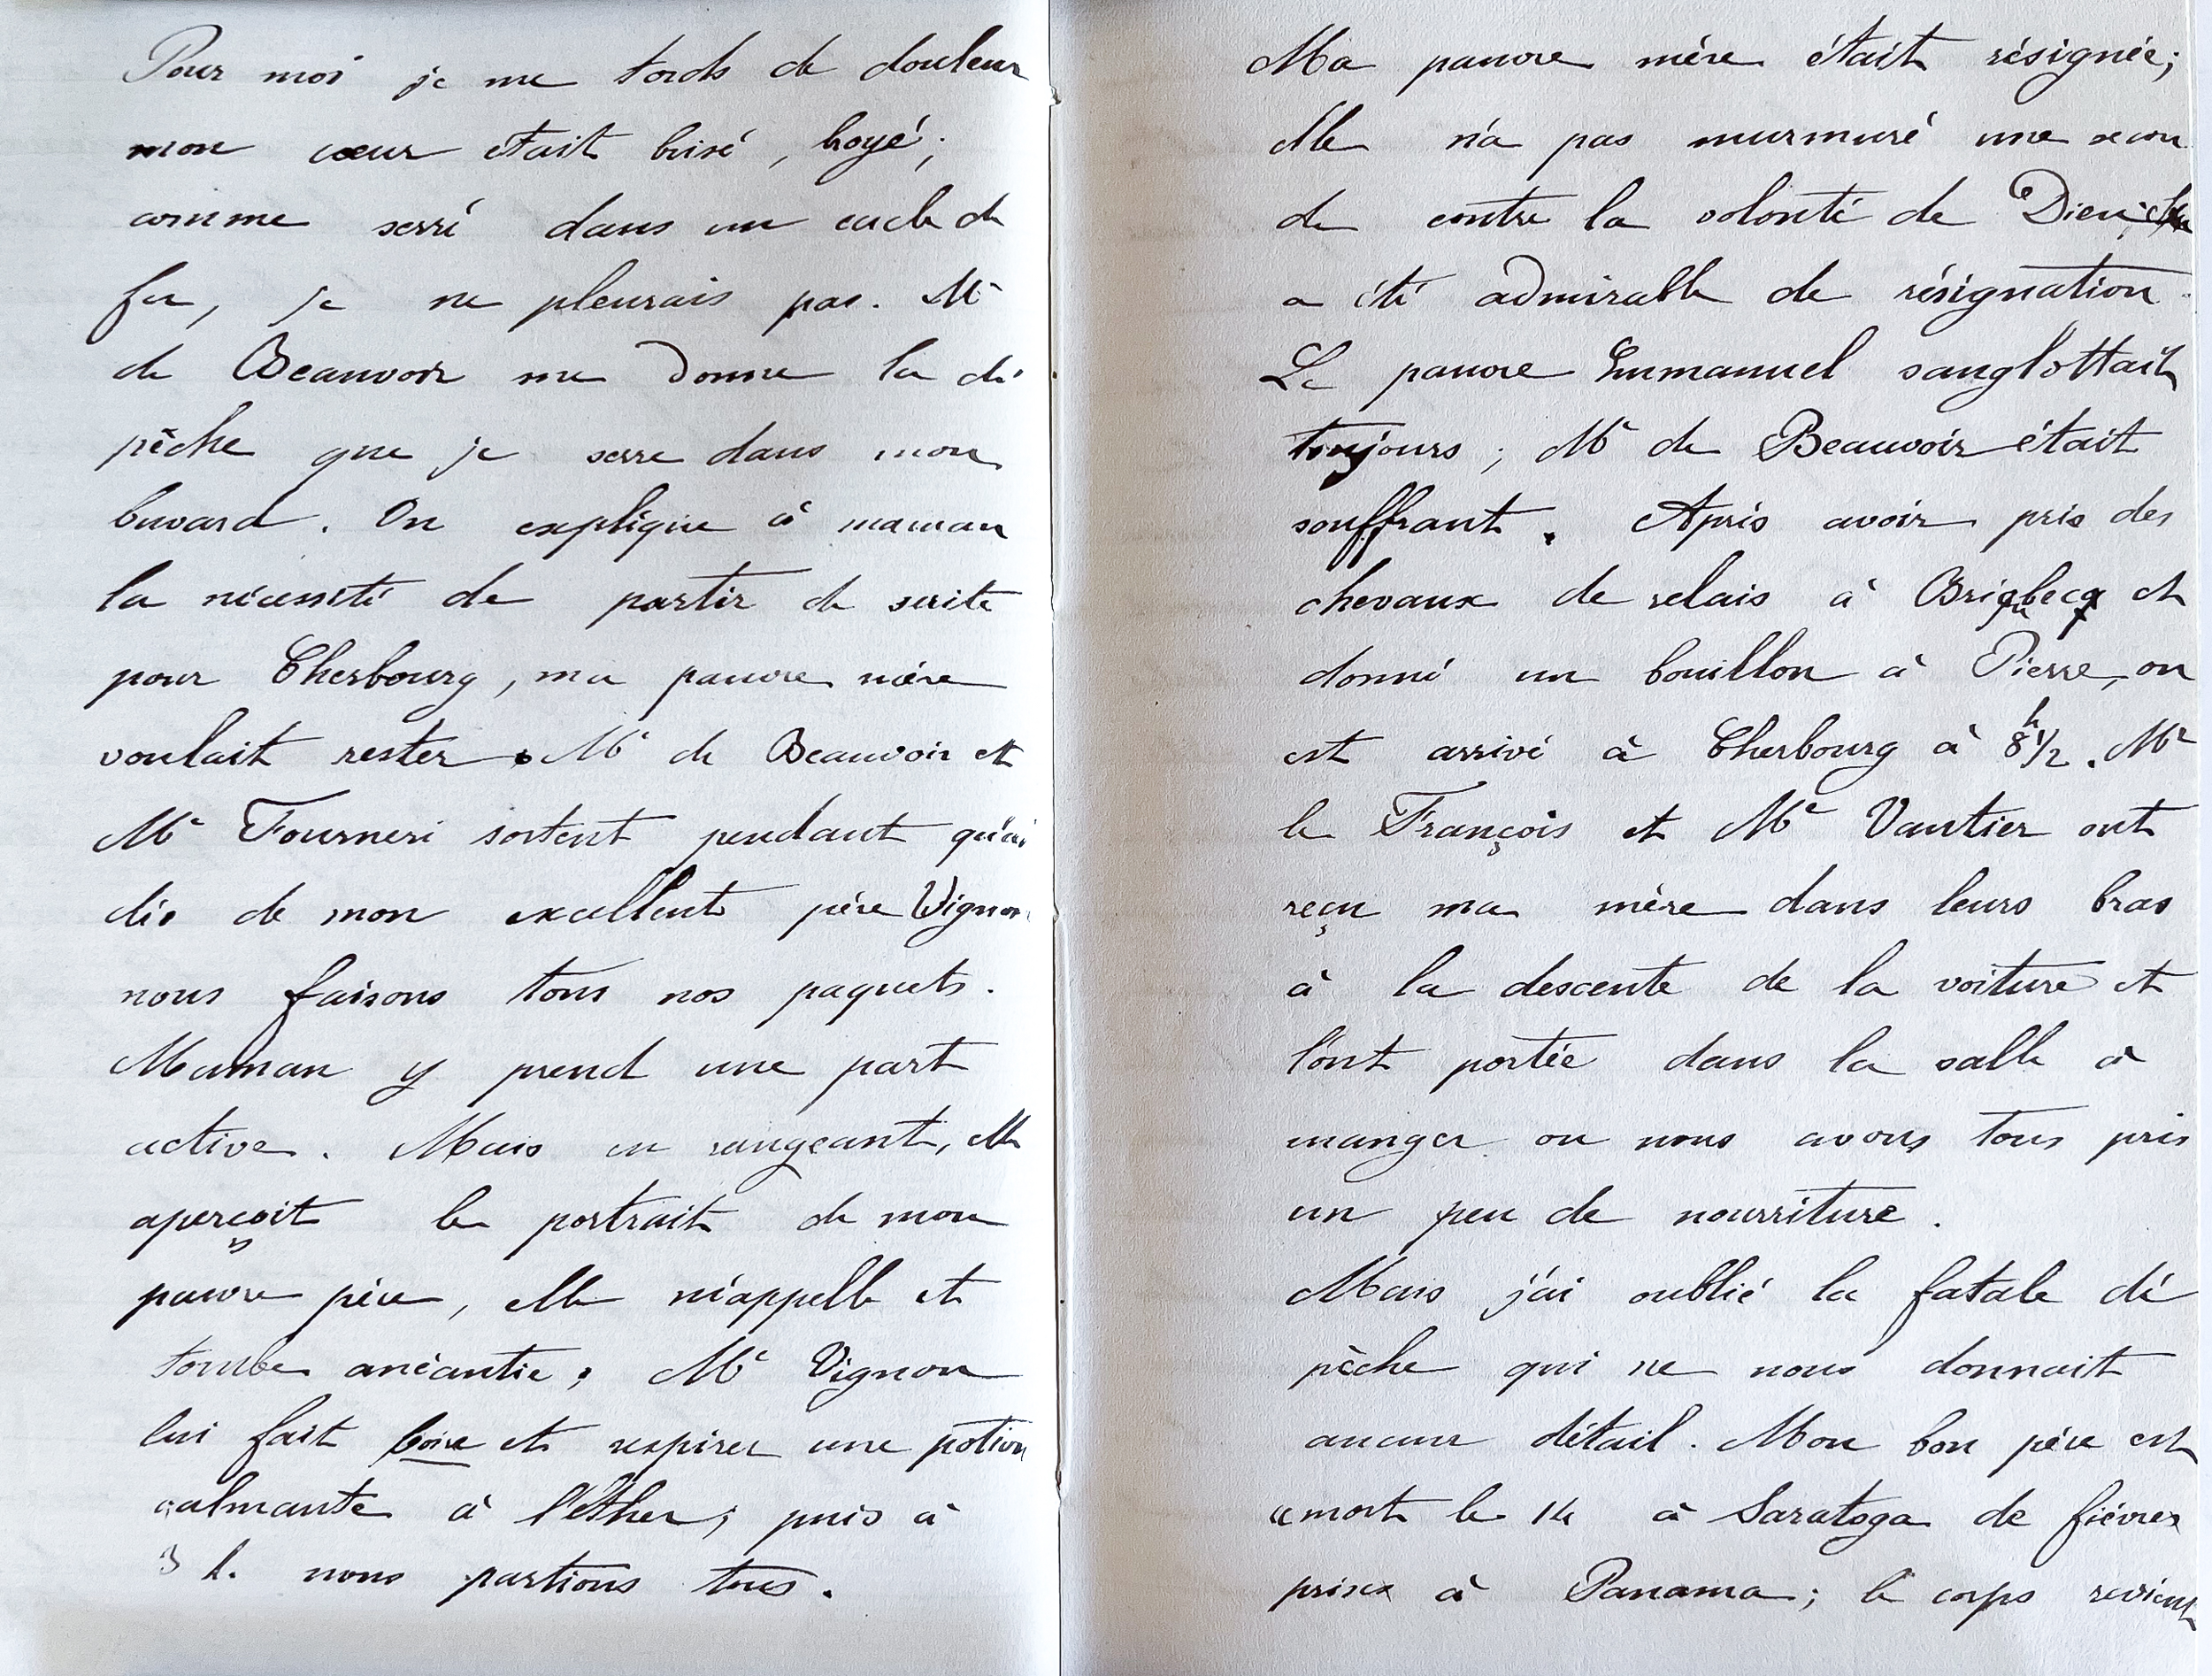 Pour moi je me tords de douleur
mon cœur était brisé, broyé;
comme serré dans un cercle de
fer, je ne pleurais pas. Mr
de Beauvoir me donne la dé
pêche que je serre dans mon
buvard. On explique à maman
la nécessité de partir de suite
pour Cherbourg, ma pauvre mère
voulait rester. Mr de Beauvoir et
Mr Fourneri sortent pendant qu'ai
dés de mon excellent père Vignon
nous faisons tous nos paquets.
Maman y prend une part
active. Mais en rangeant, elle
aperçoit le portrait de mon
pauvre père, elle m'appelle et
tombe anéantie; Mr Vignon
lui fait boire et respirer une potion
calmante à l'éther; puis à
3 h. nous partions tous.
Ma pauvre mère était résignée;
elle n'a pas murmuré une secon
de contre la volonté de Dieu; elle
a été admirable de résignation.
Le pauvre Emmanuel sanglottait
toujours; Mr de Beauvoir était
souffrant. Après avoir pris des
chevaux de relais à et
donné un bouillon à Pierre, on
est arrivé à Cherbourg à 8h 1/2. Mr
le François et Mr Vautier ont
reçu ma mère dans leurs bras
à la descente de la voiture et
l'ont portée dans la salle à
manger ou nous avons tous pris
un peu de nourriture.
Mais j'ai oublié la fatale dé
pêche qui ne nous donnait
aucun détail. Mon bon père est
"mort le 14 à Saratoga de fièvres
prises à Panama; le corps revient